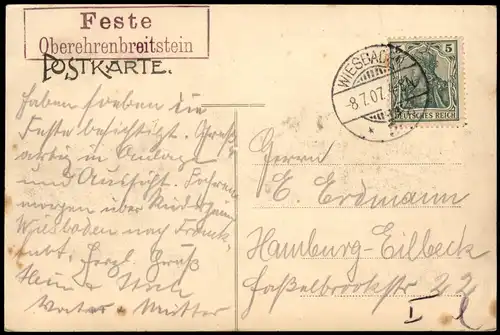 Feste
Oberehrenbreitstein
POSTKARTE.
WIESBADEN
-8.7.07.
5
DEUTSCHES REICH
Haben soeben die
Feste besichtigt. Groß-
artig in Anlage
und Aussicht. Fahren
morgen über Rüdesheim
Wiesbaden nach Frank-
furt. Herzl. Gruß
Vater u Mutter
Herrn
E. Erdmann
Hamburg-Eilbeck
Haßelbrookstr 22
I l